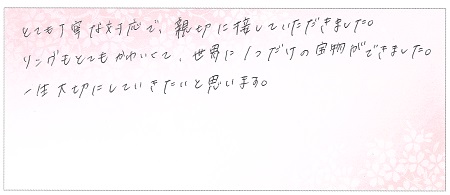 とても丁寧な対応で、親切に接していただきました。
リングもとてもかわいくて、世界に1つだけの宝物ができました。
一生大切にしていきたいと思います。